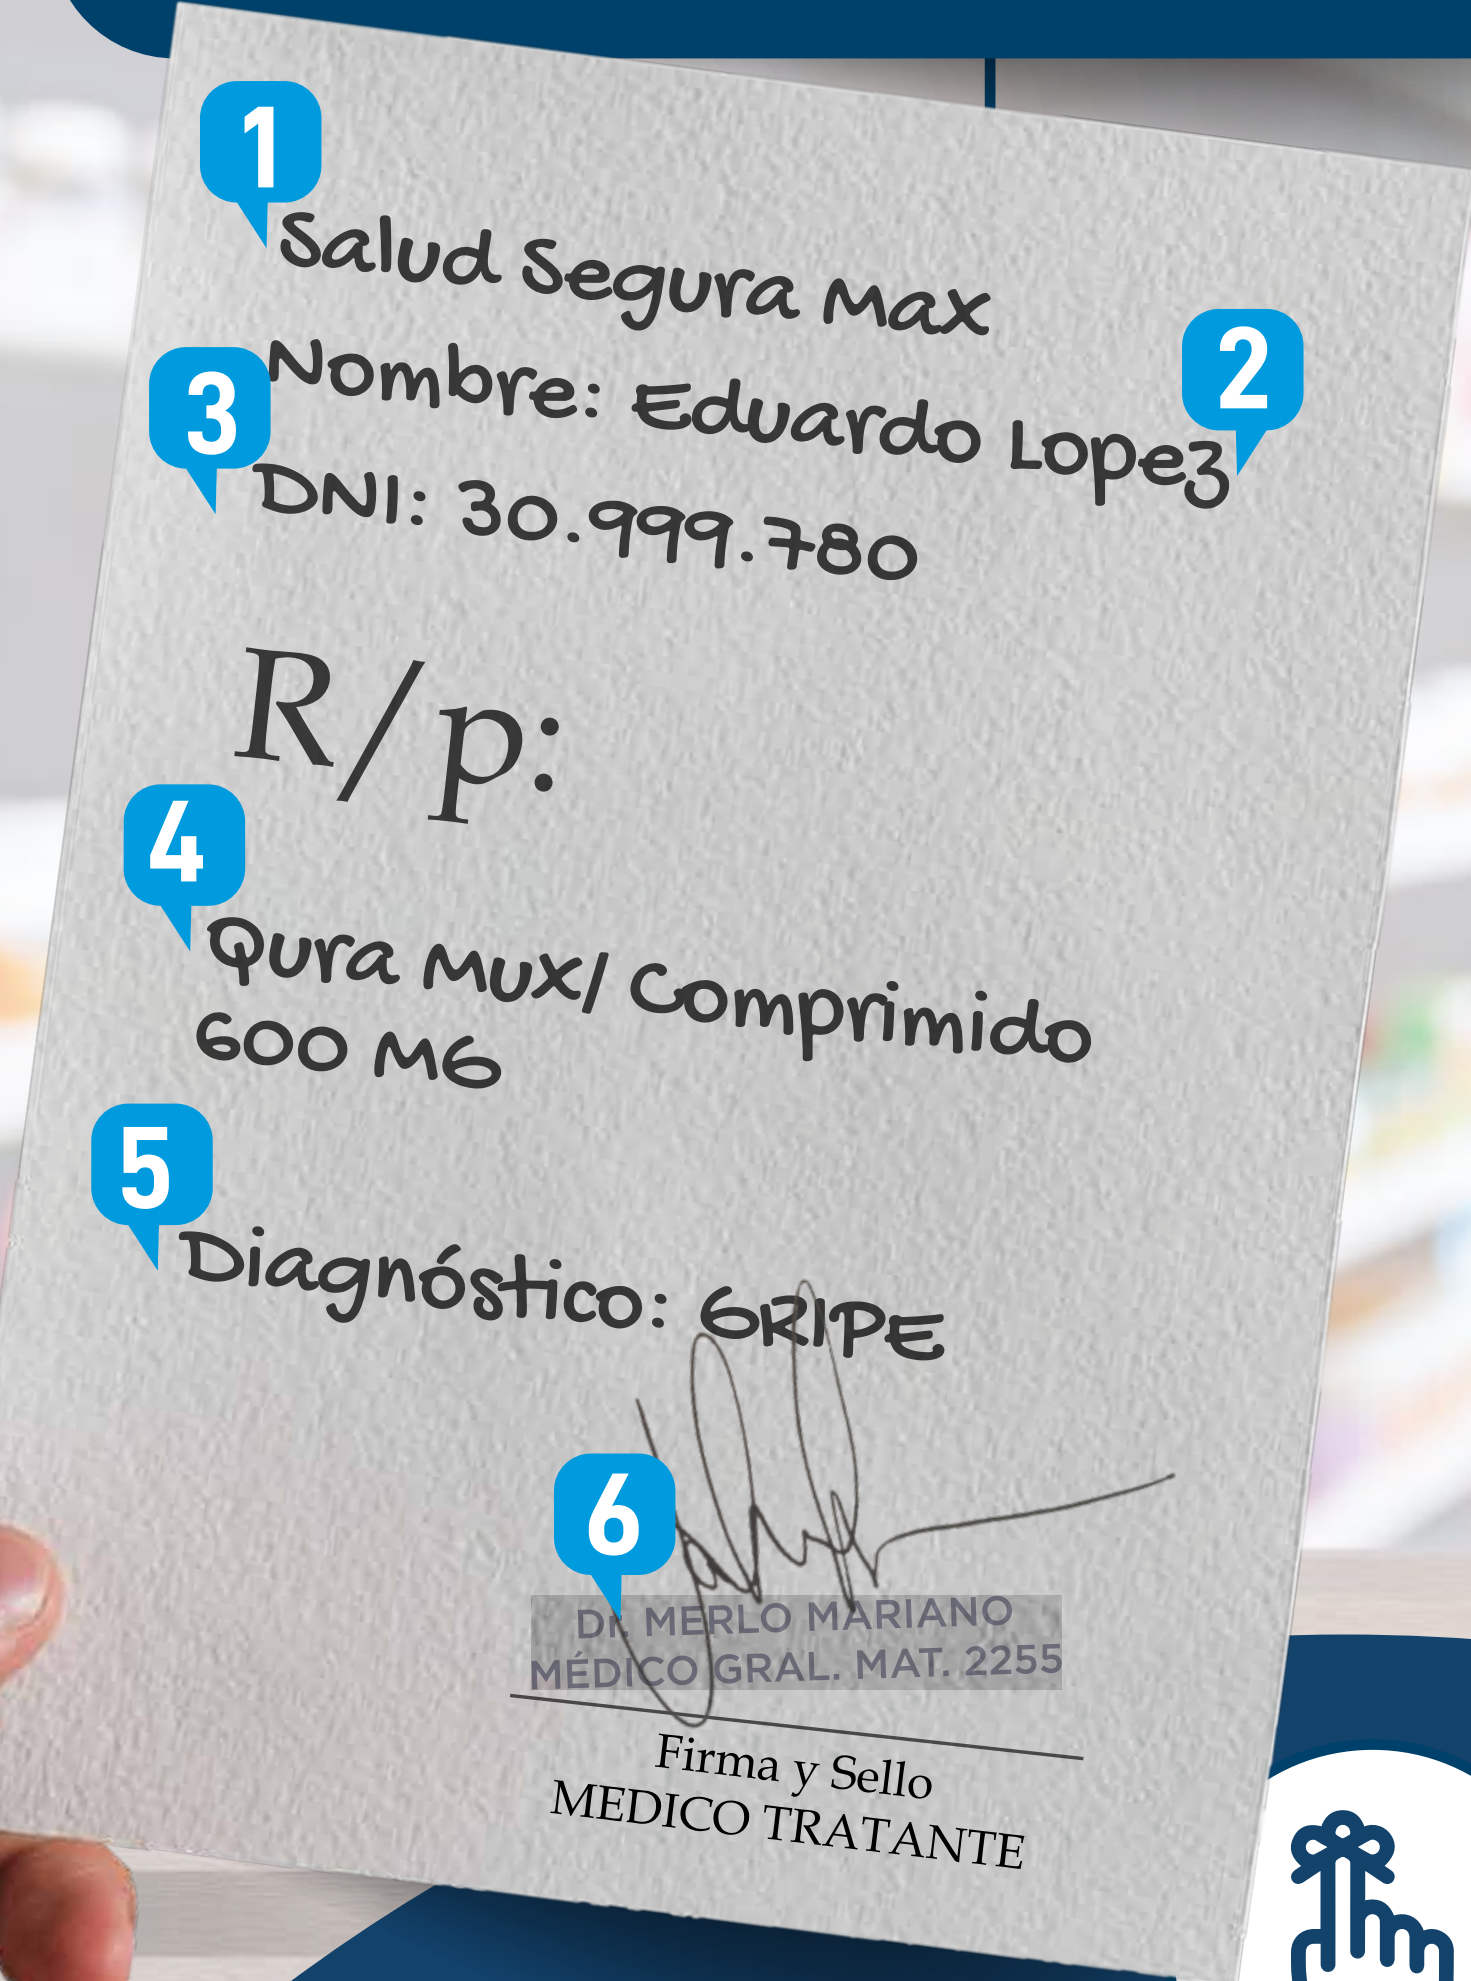 1
Salud Segura Max
2
Nombre: Eduardo Lopez
3
DNI: 30.999.780
R/p:
4
Qura Mux/ Comprimido
600 MG
5
Diagnóstico: GRIPE
6
Dr. MERLO MARIANO
MÉDICO GRAL. MAT. 2255
Firma y Sello
MEDICO TRATANTE